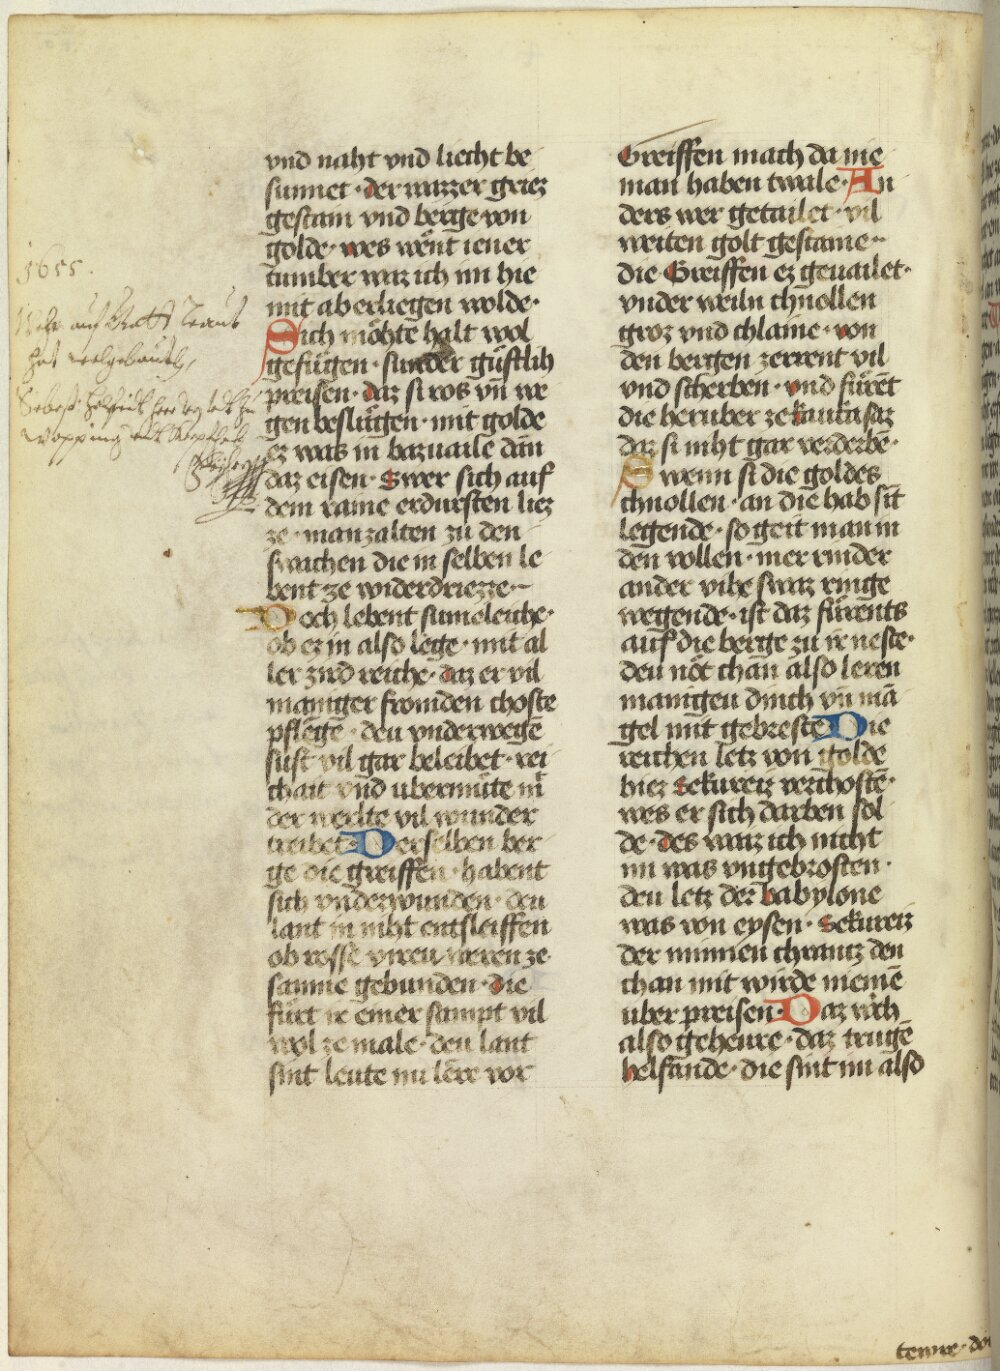 vnd naht vnd liecht be
sunnet · der wazzer griez
gestain vnd berge von
golde · wes went iener
tumber waz ich im hie
mit ab erliegen wolde ·
Sich möhte halt wol
gefügen · sunder gustlih
preisen · daz si ros vn̄ we
gen beslügen · mit golde
ez was in bazuaile dan
daz eisen · Swer sich auf
dem raine erdursten liez
ze · manzalten zu den
swachen die in selben le
bent ze widerdriezze ·
Doch lebent sumeleiche ·
ob ez in also lege · mit al
ler zird reiche · daz er vil
maniger fromden choste
pflege · deu vnderwegē
sust vil gar beleibet · rei
chait vnd ubermüte in
der werlte vil wunder
treibet · Derselben ber
ge die greiffen · habent
sich vnderwunden · deu
lant in niht entsleiffen
ob rosse viren weren ze
samne gebunden · die
fürt ir einer sampt vil
wol ze male · deu lant
sint leute nu lere vor
Greiffen mach da nie
man haben twale · An
ders wer getailet · vil
weiten golt gestaine ·
die Greiffen ez geuailet ·
vnder weiln chnollen
groz vnd chlaine · von
den bergen zerrent vil
vnd scherben · vnd fürēt
die heruber ze kaukasaz
daz si niht gar verderbe ·
Swenn si die goldes
chnollen · an die hab sīt
legende · so geit man in
den vollen · mer rinder
ander vihe swaz ringe
wegende · ist daz fürents
auf die berge zu ir neste ·
deu nöt chan also leren
manigeu dinch vn̄ mā
gel mit gebreste · Die
reichen letz von golde
hiez Sekureiz verchostē ·
wes er sich darben sol
de · des waiz ich nicht
im was vngebrosten ·
deu letz der babylone
was von eysen · Sekureiz
der minnen chrantz den
chan mit wirde niemē
uber preisen · Daz rich
also geheure · daz trugē
helfande · die sint im also
1655.